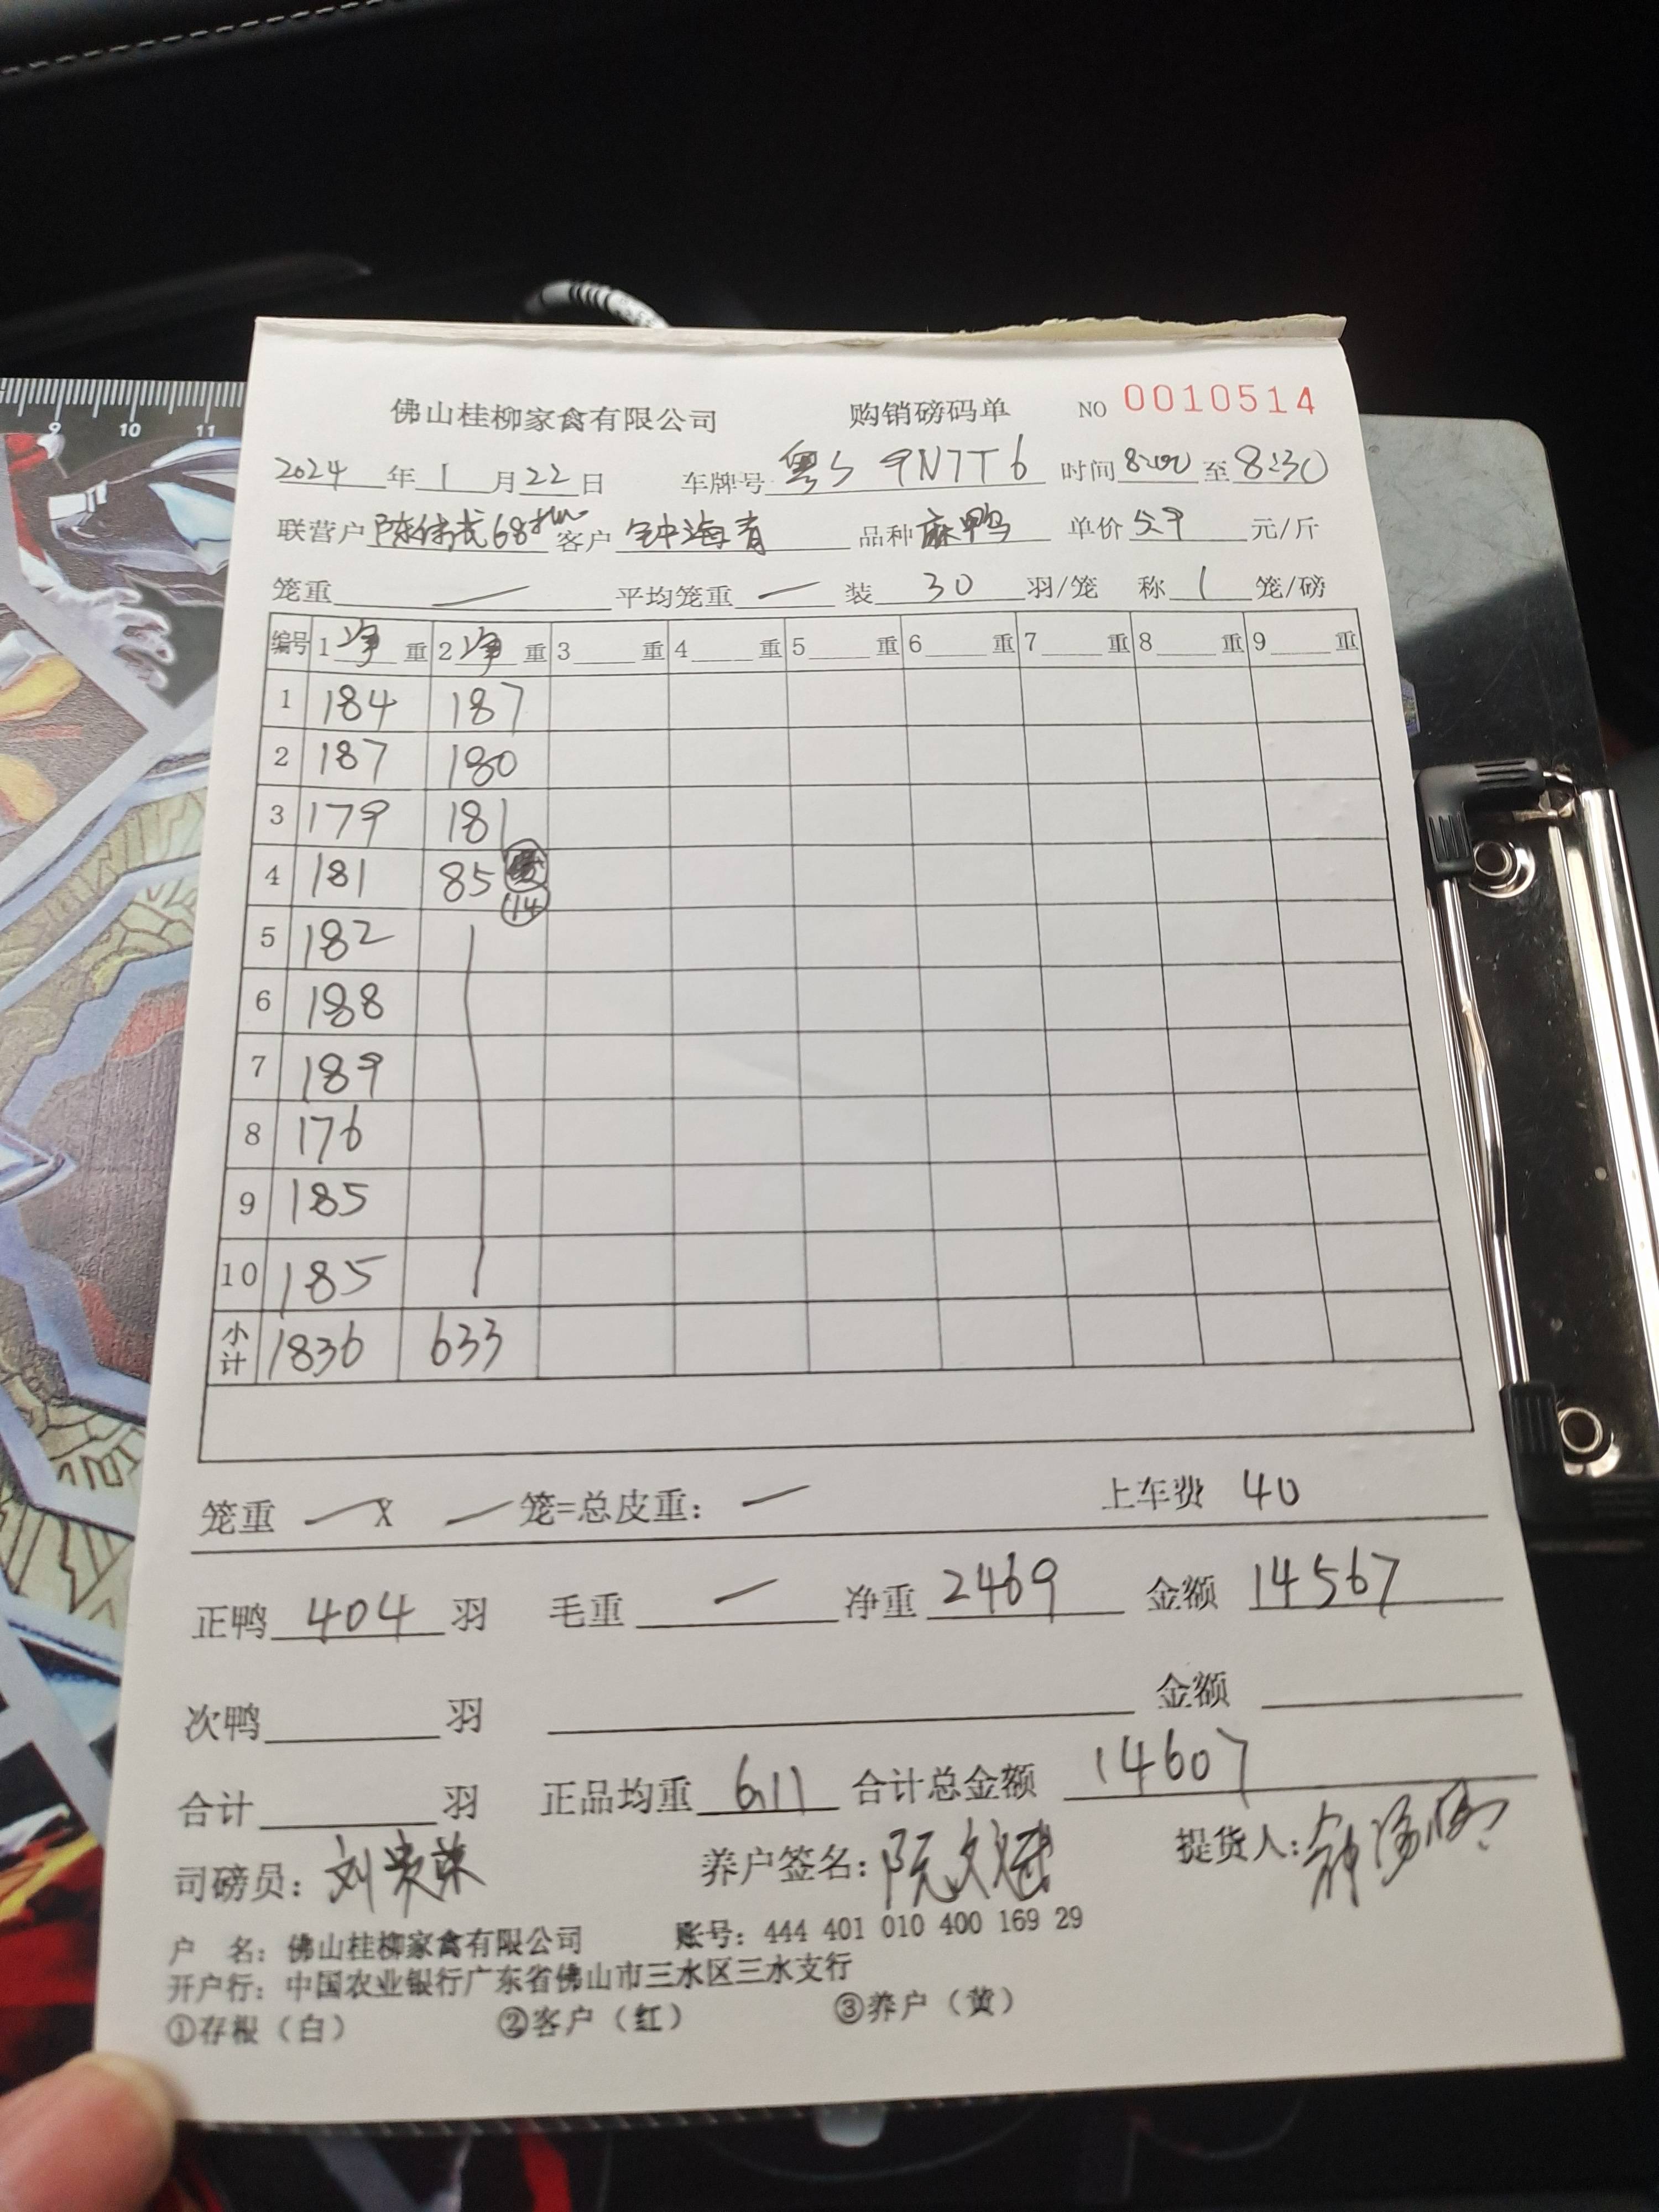 9 10 11
佛山桂柳家禽有限公司 购销磅码单 NO 0010514
2024年1月22日 车牌号 粤S 9N7T6 时间 8:00 至 8:30
联营户 陈伟 68 客户 钟海青 品种 麻鸭 单价 5.9 元/斤
笼重 — 平均笼重 — 装 30 羽/笼 称 1 笼/磅
编号 1 净 重 2 净 重 3 重 4 重 5 重 6 重 7 重 8 重 9 重
1 184 187
2 187 180
3 179 181
4 181 85 14
5 182
6 188
7 189
8 176
9 185
10 185
小计 1836 633
笼重 — X — 笼=总皮重: — 上车费 40
正鸭 404 羽 毛重 — 净重 2469 金额 14567
次鸭 羽 金额
合计 羽 正品均重 6.11 合计总金额 14607
司磅员: 刘 养户签名: 阮文 提货人:
户 名: 佛山桂柳家禽有限公司 账号: 444 401 010 400 169 29
开户行: 中国农业银行广东省佛山市三水区三水支行
①存根（白） ②客户（红） ③养户（黄）